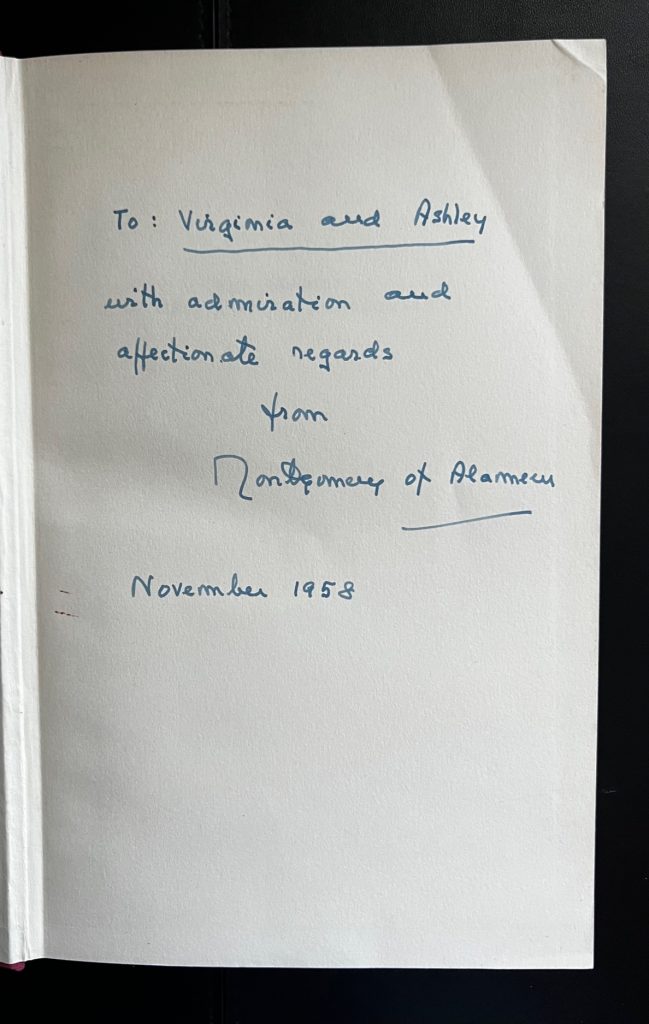 To: Virginia and Ashley
with admiration and
affectionate regards
from
Montgomery of Alamein
November 1958